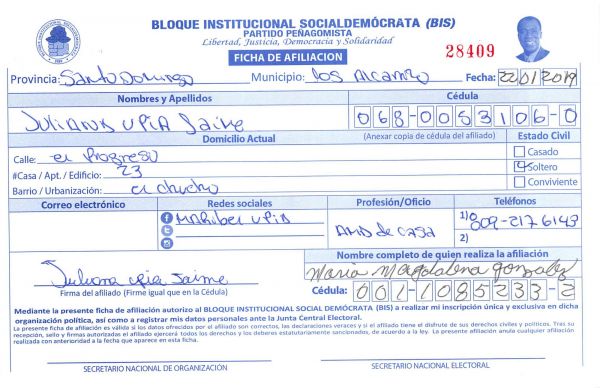 BLOQUE INSTITUCIONAL SOCIALDEMÓCRATA (BIS)
PARTIDO PEÑAGOMISTA
Libertad, Justicia, Democracia y Solidaridad
FICHA DE AFILIACION
28409
Provincia: Santo Domingo Municipio: los Alcarrizo Fecha: 22/01/2019
Nombres y Apellidos Cédula
Juliana upia Jaime 068-0053106-0
Domicilio Actual (Anexar copia de cédula del afiliado) Estado Civil
Calle: el Progreso Casado
#Casa / Apt. / Edificio: 23 Soltero
Barrio / Urbanización: el chucho Conviviente
Correo electrónico Redes sociales Profesión/Oficio Teléfonos
Maribel upia AMA de casa 1) 809-217 6143
2)
Nombre completo de quien realiza la afiliación
Juliana upia Jaime Maria Magdalena gonzalez
Firma del afiliado (Firme igual que en la Cédula) Cédula: 001-1085233-2
Mediante la presente ficha de afiliación autorizo al BLOQUE INSTITUCIONAL SOCIAL DEMÓCRATA (BIS) a realizar mi inscripción única y exclusiva en dicha
organización política, así como a registrar mis datos personales ante la Junta Central Electoral.
La presente ficha de afiliación es válida si los datos ofrecidos por el afiliado son correctos, las declaraciones veraces y si el afiliado tiene el disfrute de sus derechos civiles y políticos. Tras su
recepción, sello y firmas autorizadas el afiliado ejercerá todos los derechos y los deberes estatutariamente sancionados, de acuerdo a la ley. La presente afiliación anula cualquier afiliación
realizada con anterioridad a la fecha que aparece en esta ficha.
SECRETARIO NACIONAL DE ORGANIZACIÓN SECRETARIO NACIONAL ELECTORAL